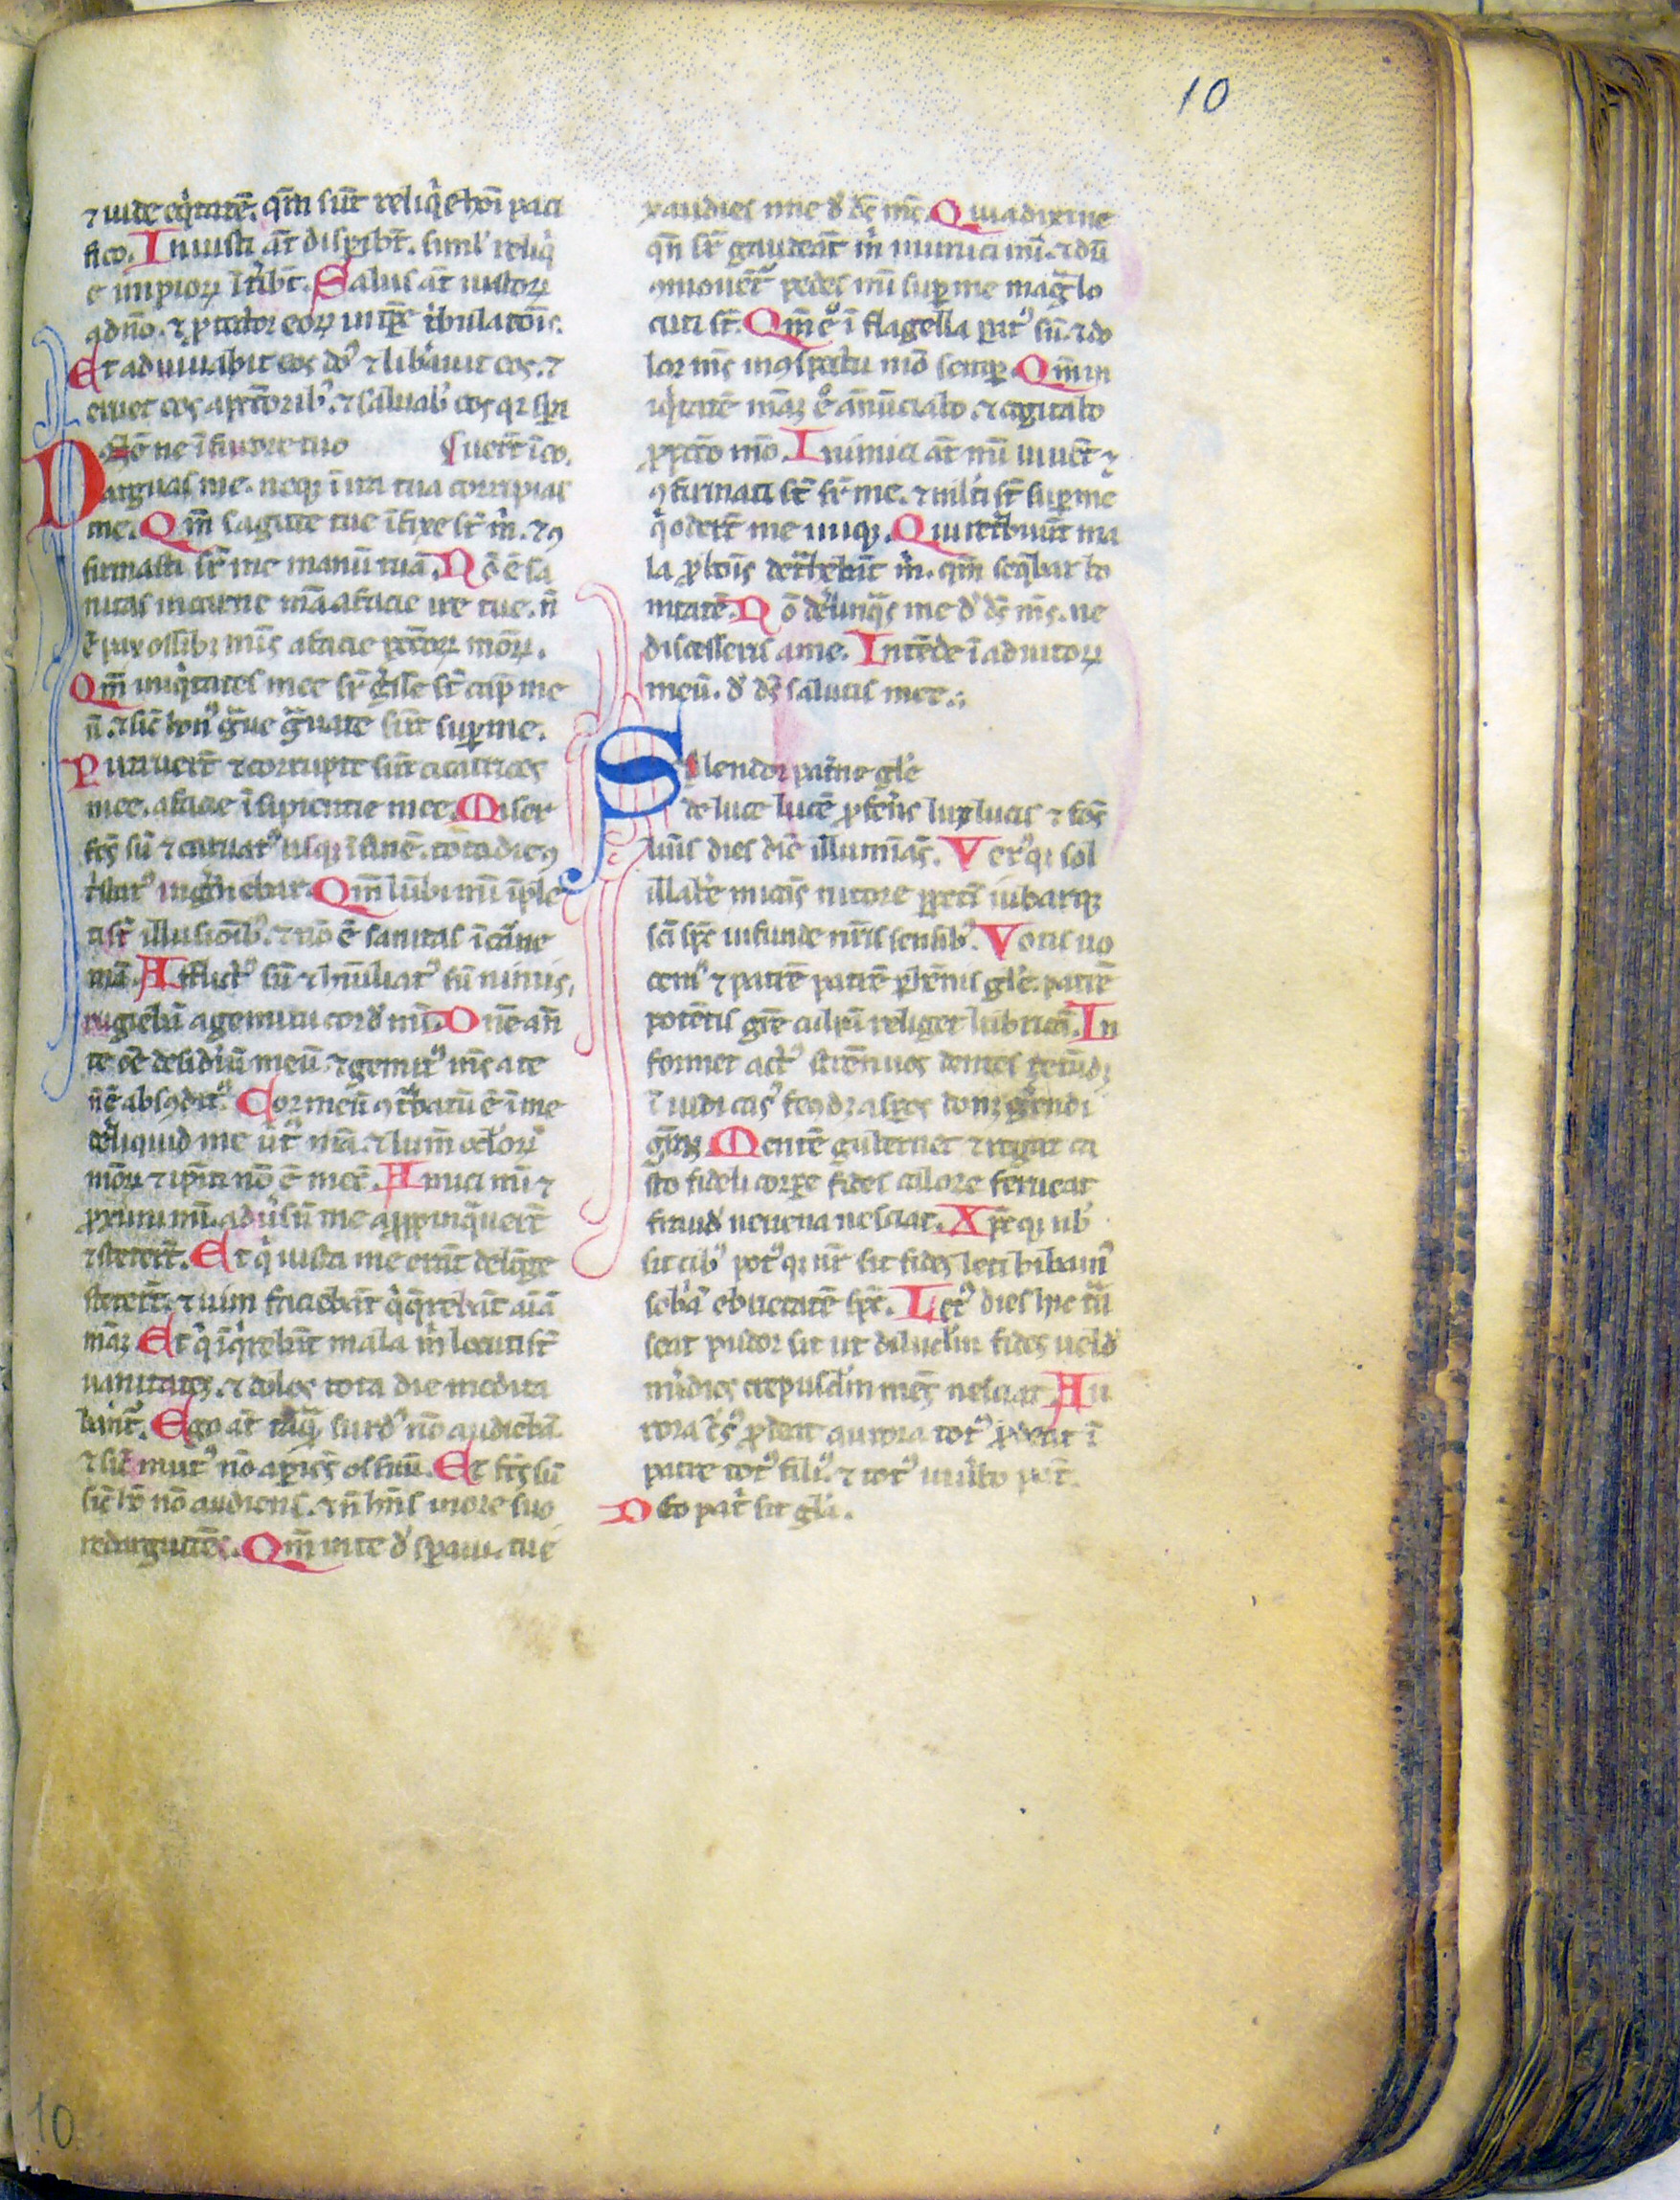 10
⁊ uide eq̇tatē. qm̄ sūt reliq̇e hoī paci
fico. Iniusti aūt dispibt̄. siml' reliq̇
e impioꝝ ītibt̄. Salus aūt iustoꝝ
a dn̄o. ⁊ ꝓtector eoꝝ in tp̄e tbulatōis.
Et adiuuabit eos dn̄s ⁊ libauit eos. ⁊
eruet eos a pctōrib'. ⁊ saluab' eos qi spa
Dn̄e ne ī furore tuo uerūt ī eo.
arguas me. neqꝫ ī ira tua corripias
me. Qm̄ sagitte tue īfixe st̄ m̄. ⁊ ꝯ
firmasti sr̄ me manū tuā. Nō ē sa
nitas in carne mā a facie ire tue. n̄
ē pax ossibꝫ mīs a facie pctōꝝ mōꝝ.
Qm̄ iniq̇tates mee sr̄ ġsse st̄ cap̄ me
ū. ⁊ sic̄ hon' ġue ġuate sūt suꝑ me.
Putruert̄ ⁊ corrupte sūt cicatrices
mee. a facie īsipientie mee. Miser
fcs̄ sū ⁊ curuat' usqꝫ ī finē. tota die ꝯ
tstat' ingdiebar. Qm̄ lūbi mī īple
ti st̄ illusiōib'. ⁊ nō ē sanitas ī carne
mā. Afflict' sū ⁊ hūiliat' sū nimis,
rugiebā a gemitu cord' mī. Dn̄e an̄
te oē desidiū meū. ⁊ gemit' mīs a te
n̄ ē absꝯdit'. Cor meū ꝯtbatū ē ī me
deliquid me uīt' mā. ⁊ lum̄ ocl'oꝝ
mōꝝ ⁊ ipm̄ nō ē mecū. Amici mī ⁊
ꝓximi mī. adūsū me apꝓpinq̇uert̄
⁊ stetert̄. Et q̇ iuxta me erāt delonge
stetert̄. ⁊ uim faciebāt q̇ q̇rebāt aīā
māꝫ. Et q̇ īq̇rebāt mala m̄ locuti st̄
uanitates. ⁊ dolos tota die medita
bāt'. Ego aūt taq̄ surd' nō audiebā.
⁊ sic̄ mut' nō aꝑiēs os suū. Et fcs̄ sū
sic̄ hō nō audiens. ⁊ n̄ hn̄s in ore suo
redargutōes. Qm̄ in te d' spaui. tu e
xaudies me d' ds̄ ms̄. Quia dixi ne
qn̄ sr̄ gaudeāt m̄ inimici mī. ⁊ dū
ꝯmouēt' pedes mī suꝑ me mag̈ lo
cuti st̄. Qm̄ e' ī flagella ꝑat' sū. ⁊ do
lor ms̄ in ꝯspectu mō semꝑ. Qm̄ in
iq̇tatē māꝫ e' anūciabo. ⁊ cogitabo
ꝓ pctō mō. Inimici aūt mī uiuēt ⁊
ꝯfirmati st̄ sr̄ me. ⁊ ml'ti st̄ suꝑ me
q̇ odert̄ me iniqꝫ. Qui retibuūt ma
la ꝓ bois detahebūt m̄. qm̄ seq̄bar bo
nitatē. Nō derlinq̇s me d' ds̄ ms̄. ne
discesseris a me. Intēde ī adiutoꝝ
meū. d' ds̄ salutis mee.;
Splendor pat̄ne gl'e
de luce lucē ꝓferēs lux lucis ⁊ fōs
lūis dies diē illumīas̄. Ver' qi sol
illab'e micās nitore ꝑpeti iubarqꝫ
sc̄i sp̄c infunde nr̄is sensib'. Votis uo
cem' ⁊ patrē patrē ꝑhēnis gl'e. patrē
potētis gr̄e culpā religet lubricā. In
formet act' strēnuos dentes retūdꝫ
ī uidi cas' secꝯdꝫ asꝑos donꝫ ġendi
gr̄aꝫ. Mentē gubernet ⁊ regat ca
sto fideli corꝑe fides callore ferueat
fraud' uenena nesciat. Xp̄c qꝫ nb'
sit cib' pot' qꝫ nr̄ sit fides leti bibam'
sobā ebrietatē sp̄c. Let' dies hic tā
seat pudor sit ut diluculū fides uelud
m̄idies crepusculū mēs nesciat. Au
rora cs' ꝓuehit aurora tot' ꝓdeat ī
patre tot' fili'. ⁊ tot' in uerbo pat̄.
Deo pat' sit gl'a.
10